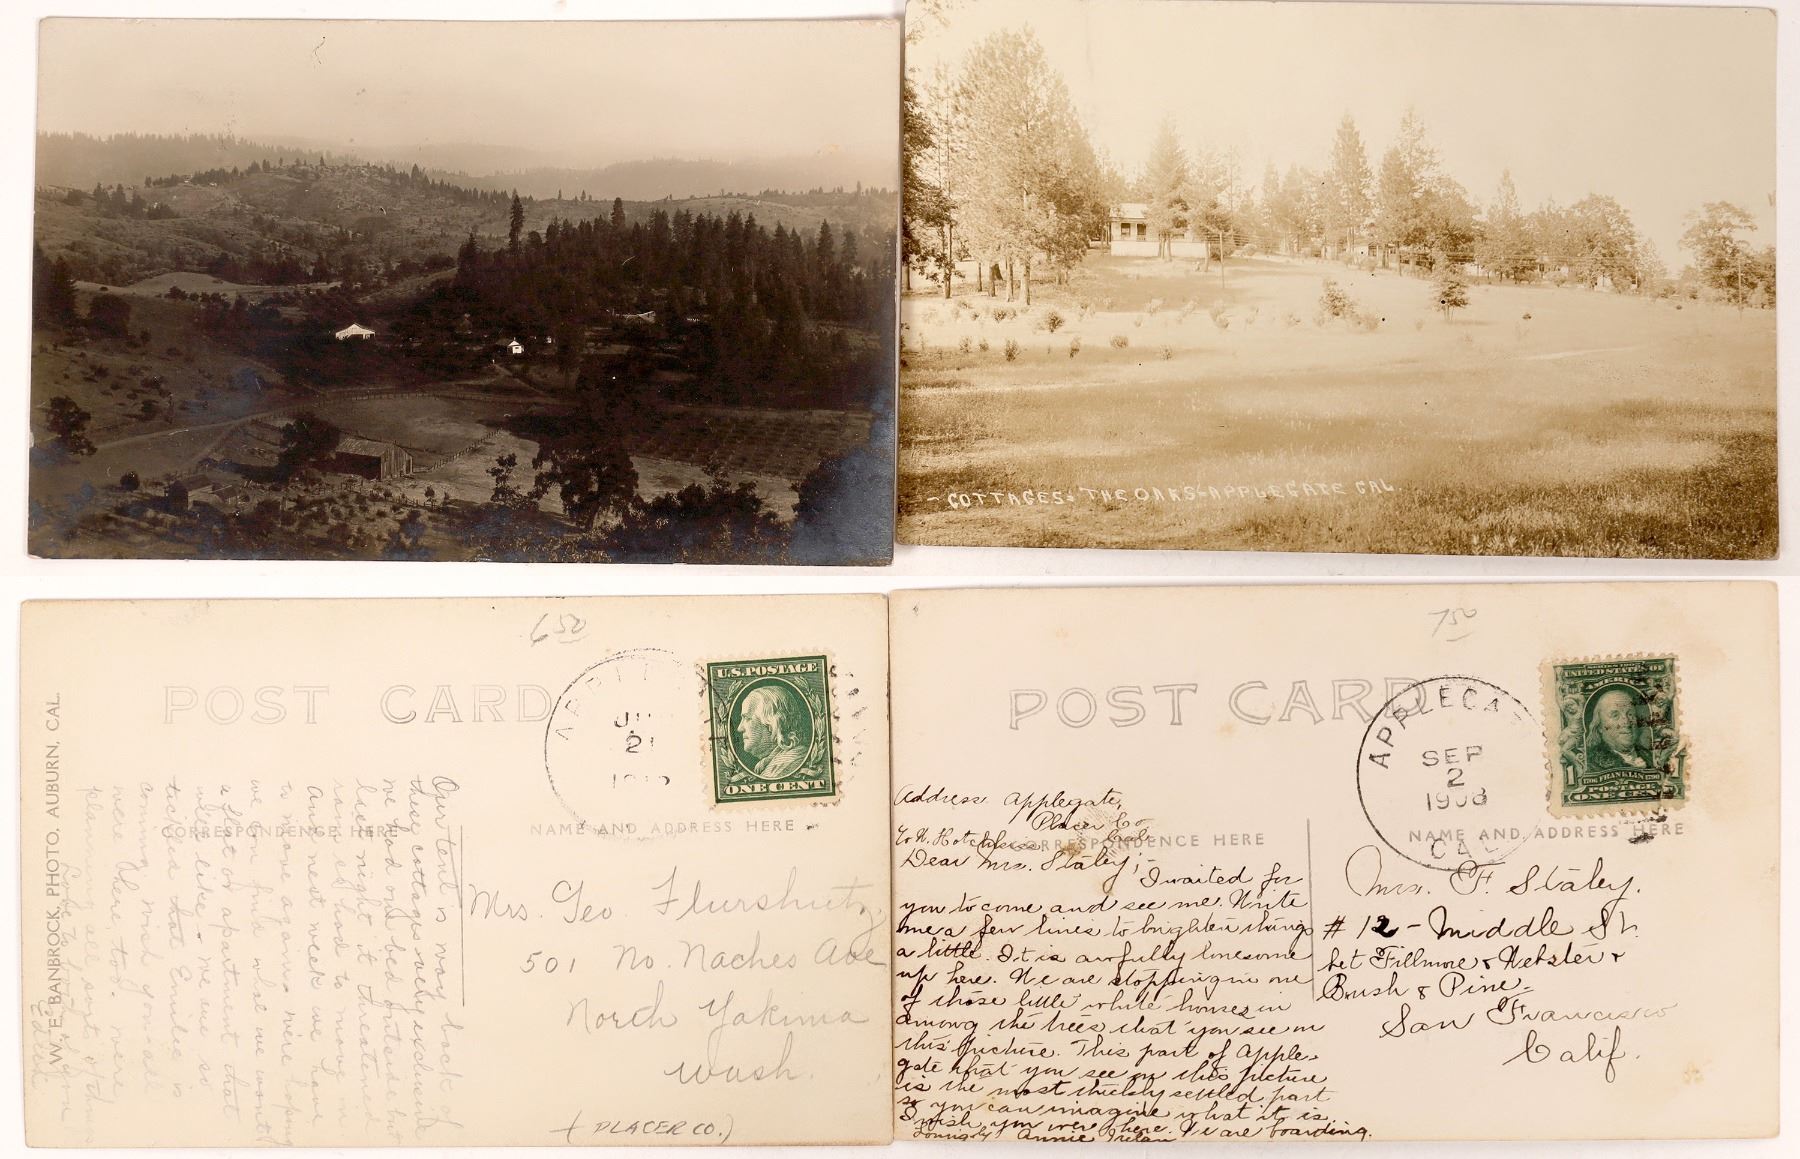 - COTTAGES - THE OAKS - APPLEGATE CAL.
W. E. BANBROCK, PHOTO. AUBURN, CAL.
POST CARD
650
U.S. POSTAGE
ONE CENT
21
CORRESPONDENCE HERE
NAME AND ADDRESS HERE
Our tent is way back of
these cottages very exclusive
we had one bed outside but
last night it threatened
rain & had to move in
And next week we have
to move again - we're hoping
we can find what we want
a flat or apartment that
we'll like - we are so
tickled that Emilie is
coming, wish you-all
were there, too. were
planning all sorts of things
Mrs. Geo Flurshutz
501 No. Naches Ave
North Yakima
Wash.
(PLACER CO.)
POST CARD
750
APPLEGAT
SEP
2
1908
CAL
SERIES 1902
UNITED STATES OF
AMERICA
1706 FRANKLIN 1790
POSTAGE
ONE CENT
CORRESPONDENCE HERE
NAME AND ADDRESS HERE
Address Applegate,
Placer Co
Calif
Hotchkiss
Dear Mrs. Staley;-
I waited for
you to come and see me. Write
me a few lines to brighten things
a little. It is awfully lonesome
up here. We are stopping in one
of those little white houses in
among the trees that you see on
this picture. This part of Apple-
gate what you see on this picture
is the most thickly settled part
so you can imagine what it is.
I wish you were here. We are boarding.
Lovingly Annie Irelan
Mrs. F. Staley.
# 12 - Middle St.
bet Fillmore & Webster &
Bush & Pine -
San Francisco
Calif.